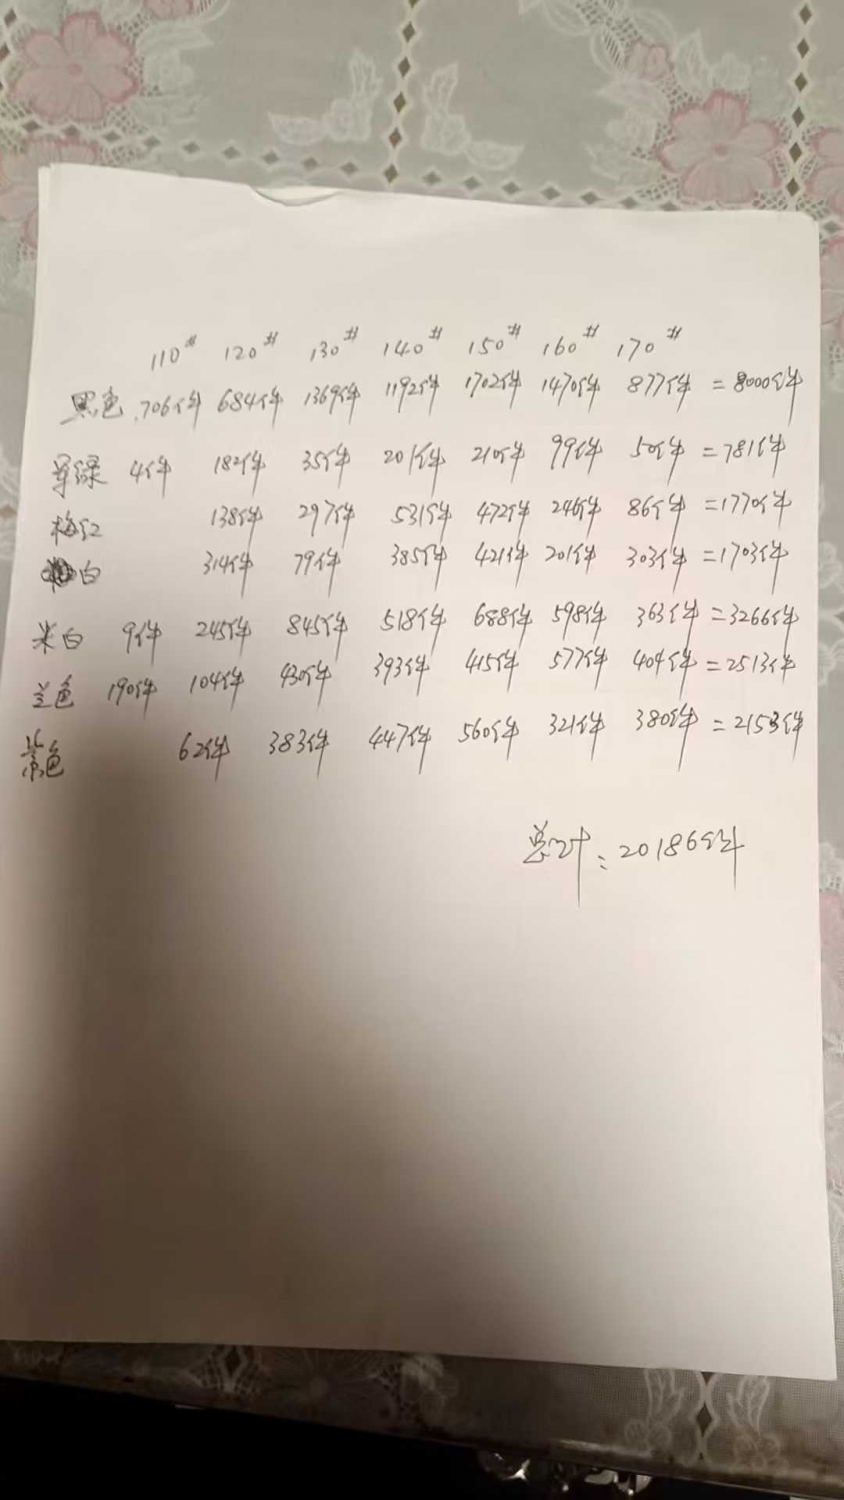 110# 120# 130# 140# 150# 160# 170#
黑色 706件 684件 1369件 1192件 1702件 1470件 877件 =8000件
军绿 4件 182件 35件 201件 210件 99件 50件 =781件
梅红 138件 297件 531件 472件 246件 86件 =1770件
白 314件 79件 385件 421件 201件 303件 =1703件
米白 9件 245件 845件 518件 688件 598件 363件 =3266件
兰色 190件 104件 430件 393件 415件 577件 404件 =2513件
紫色 62件 383件 447件 560件 321件 380件 =2153件
总计:20186件